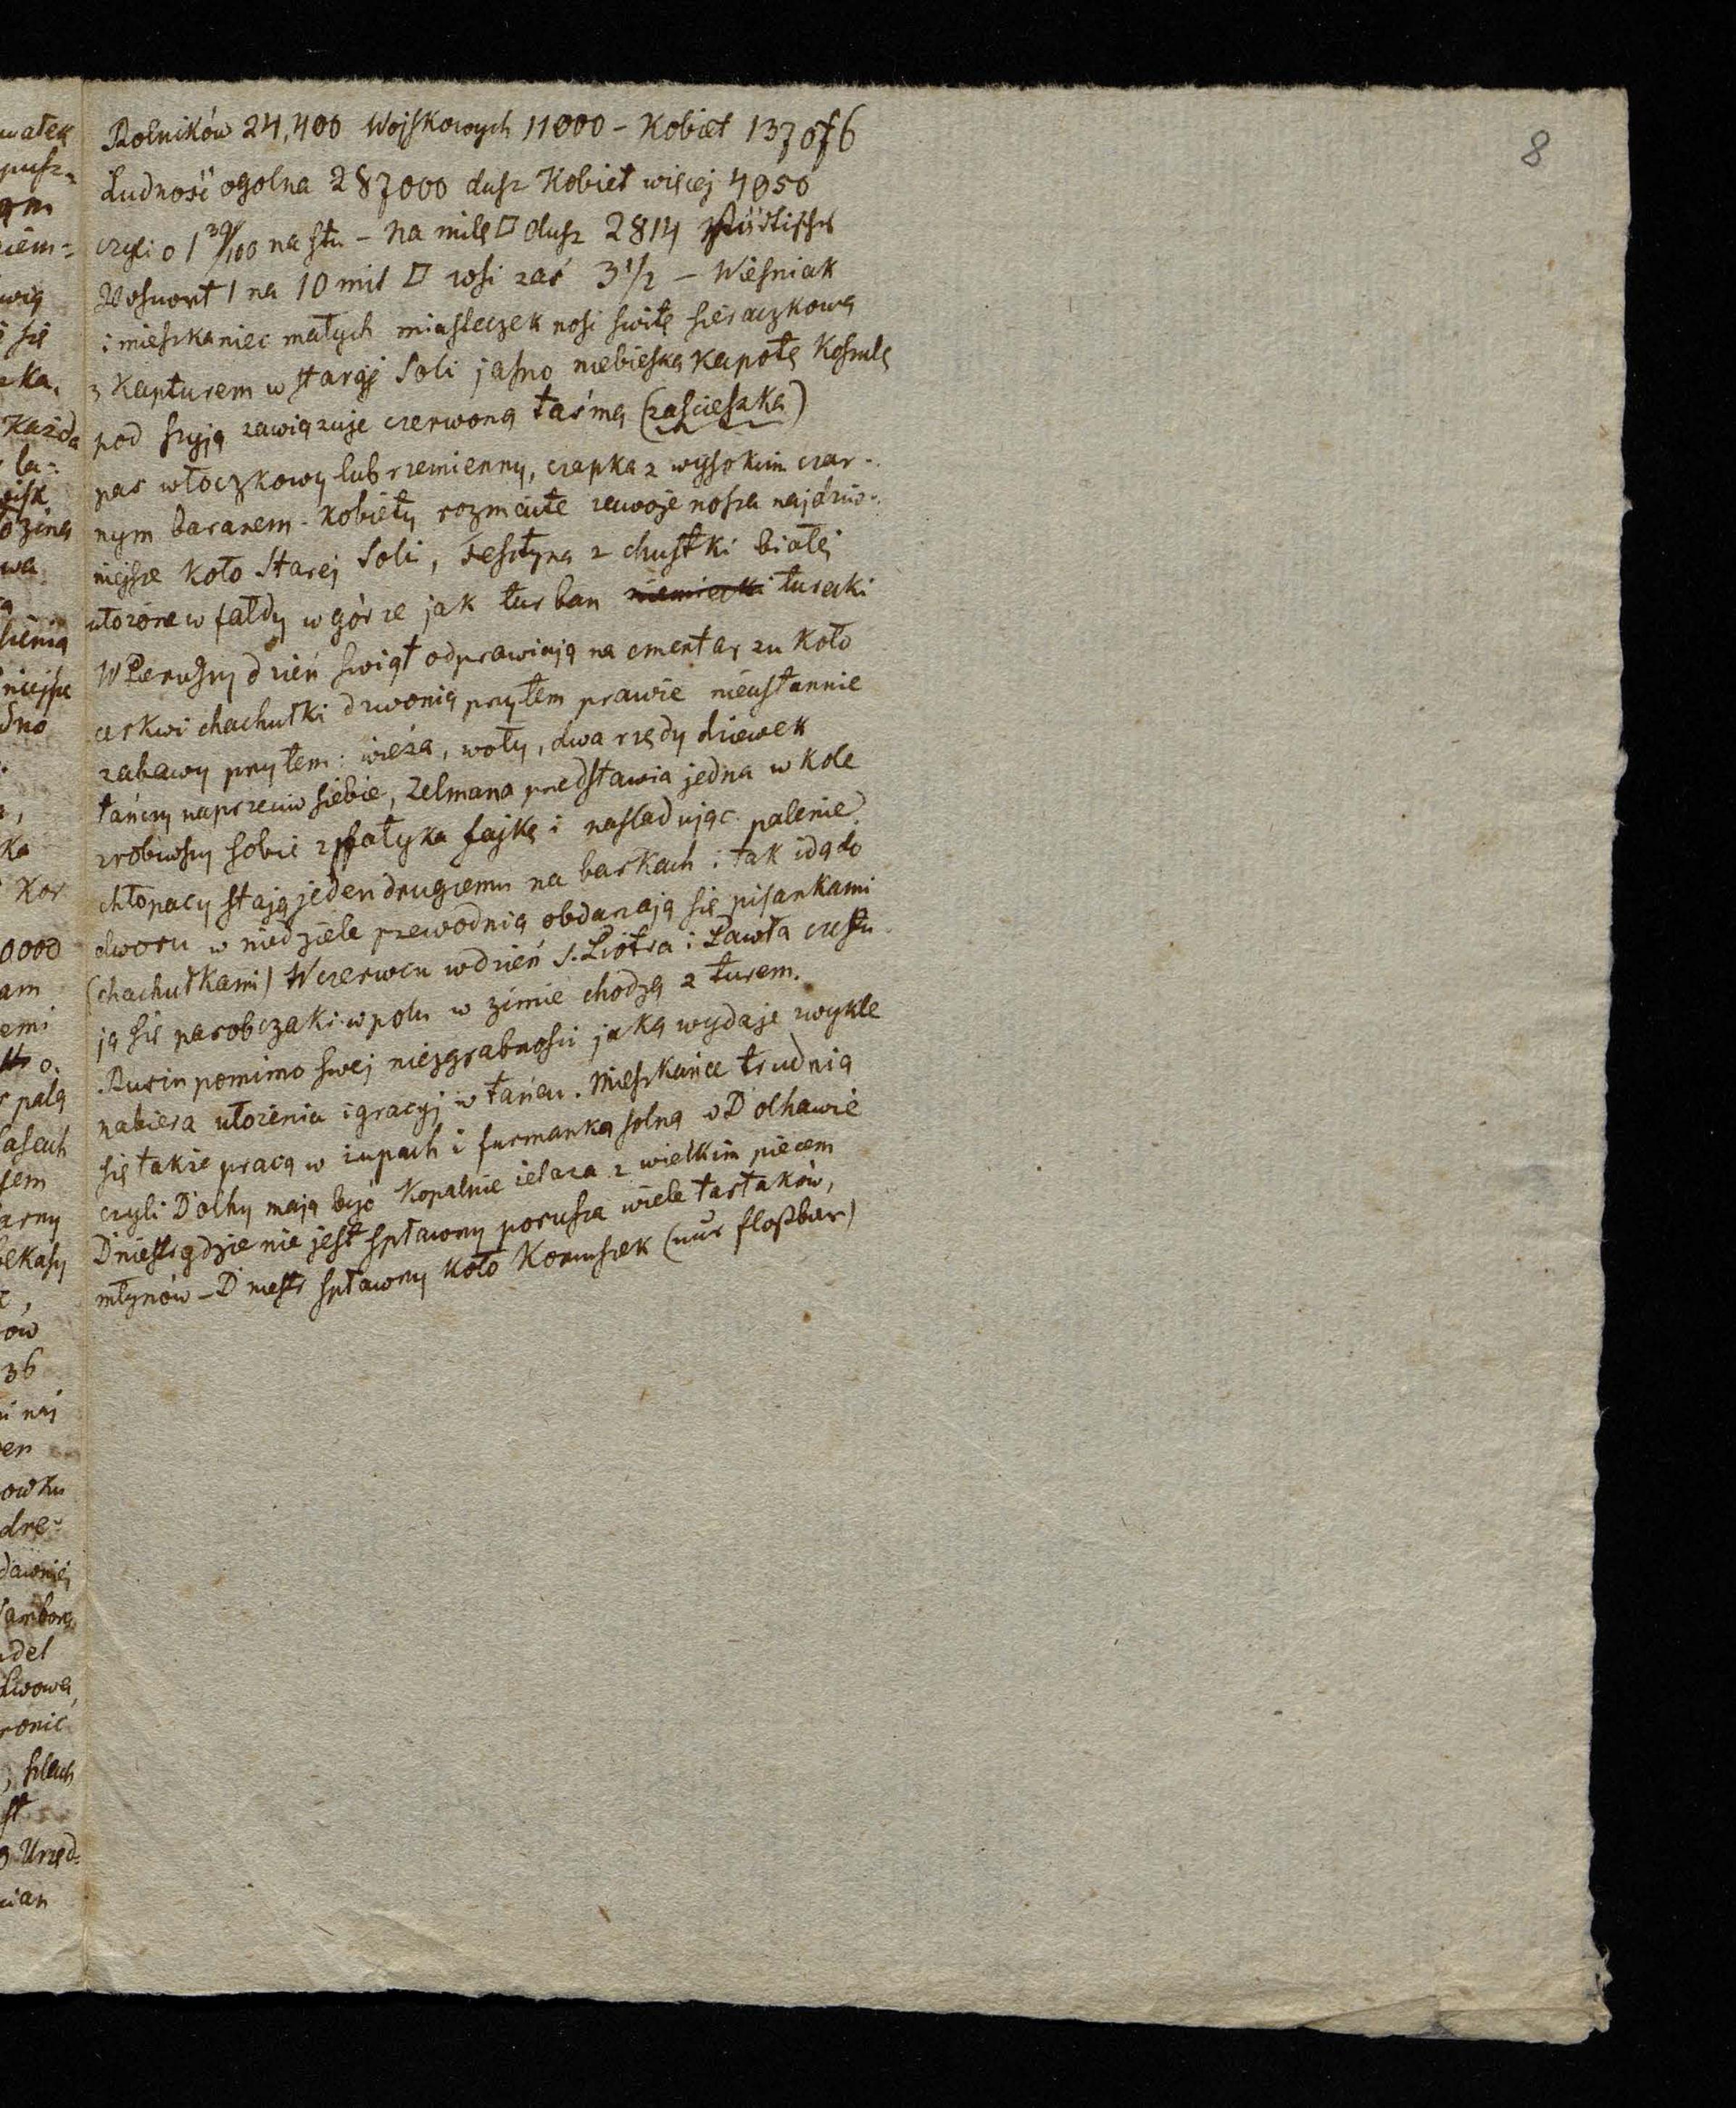 8
Rolników 24,400 Wojskowych 11000 - Kobiet 137076
Ludność ogolna 287000 dusz Kobiet więcej 4050
czyli o 1 39/100 na stu - na milę □ dusz 2814 Städtischer
Wohnort 1 na 10 mil □ wsi zaś 3 1/2 - Wieśniak
i mieszkaniec małych miasteczek nosi switę sieraczkową
z Kapturem w starej Soli jasno niebieską kapotę Koszulę
pod szyją zawiązuje czerwoną taśmą (zascieszka)
pas włoczkowy lub rzemienny, czapka z wysokim czar-
nym baranem - Kobiety rozmaite zawoje noszą najdziw-
niejsze koło Starej Soli, z chustki białej
ułożone w fałdy w górze jak turban niemiecki turecki
W Pierwszy dzień swiąt odprawiają na cmentarzu koło
cerkwi chachułki dzwonią przytem prawie nieustannie
zabawy przytem: wieża, woły, dwa rzędy dziewek
tańczy naprzeciw siebie, Zelmana przedstawia jedna w kole
zrobiwszy sobie z patyka fajkę i nasladując palenie.
chłopacy stają jeden drugiemu na barkach i tak idą do
dworu w niedziele przewodnią obdarzają się pisankami
(chachułkami) W czerwcu w dzień S. Piotra i Pawła częstu-
ją się parobczaki w polu w zimie chodzą z turem.
Rusin pomimo swej niezgrabności jaką wydaje zwykle
nabiera ułożenia i gracyj w tańcu. Mieszkańce trudnią
się także pracą w żupach i furmanką solną w Dołhawie
czyli Dołhy mają być Kopalnie żelaza z wielkim piecem
Dniestr gdzie nie jest spławny porusza wiele tartaków,
młynów - Dniestr spławny koło Koniuszek (nur floßbar)